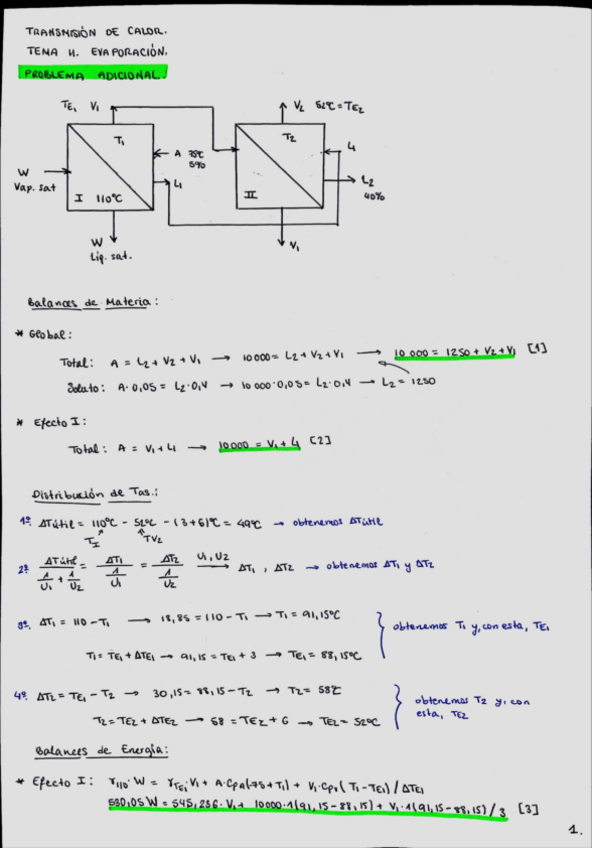 TRANSMISIÓN DE CALOR.
TEMA 4. EVAPORACIÓN.
PROBLEMA ADICIONAL.
TE₁ V₁
V₂ 52°C = TE₂
T₁
T₂
A 75°C
5%
L₁
L₁
W
Vap. sat
I 110°C
II
L₂
40%
W
Liq. sat.
V₁
Balances de Materia:
* Global:
Total: A = L₂ + V₂ + V₁ → 10000 = L₂ + V₂ + V₁ → 10 000 = 1250 + V₂ + V₁ [1]
Soluto: A · 0,05 = L₂ · 0,4 → 10 000 · 0,05 = L₂ · 0,4 → L₂ = 1250
* Efecto I:
Total: A = V₁ + L₁ → 10000 = V₁ + L₁ [2]
Distribución de Tas.:
1º. ΔTútil = 110°C - 52°C - (3+6)°C = 49°C → obtenemos ΔTútil
T_I TV₂
2º. ΔTútil / (1/U₁ + 1/U₂) = ΔT₁ / (1/U₁) = ΔT₂ / (1/U₂) U₁, U₂ → ΔT₁, ΔT₂ → obtenemos ΔT₁ y ΔT₂
3º. ΔT₁ = 110 - T₁ → 18,85 = 110 - T₁ → T₁ = 91,15°C
obtenemos T₁ y, con esta, TE₁
T₁ = TE₁ + ΔTE₁ → 91,15 = TE₁ + 3 → TE₁ = 88,15°C
4º. ΔT₂ = TE₁ - T₂ → 30,15 = 88,15 - T₂ → T₂ = 58°C
obtenemos T₂ y, con esta, TE₂
T₂ = TE₂ + ΔTE₂ → 58 = TE₂ + 6 → TE₂ = 52°C
Balances de Energía:
* Efecto I: r₁₁₀ · W = r_TE₁ · V₁ + A · CpA (75 + T₁) + V₁ · Cpv (T₁ - TE₁) / ΔTE₁
530,05 W = 545,236 · V₁ + 10000 · 1 (91,15 - 88,15) + V₁ · 1 (91,15 - 88,15) / 3 [3]
1.